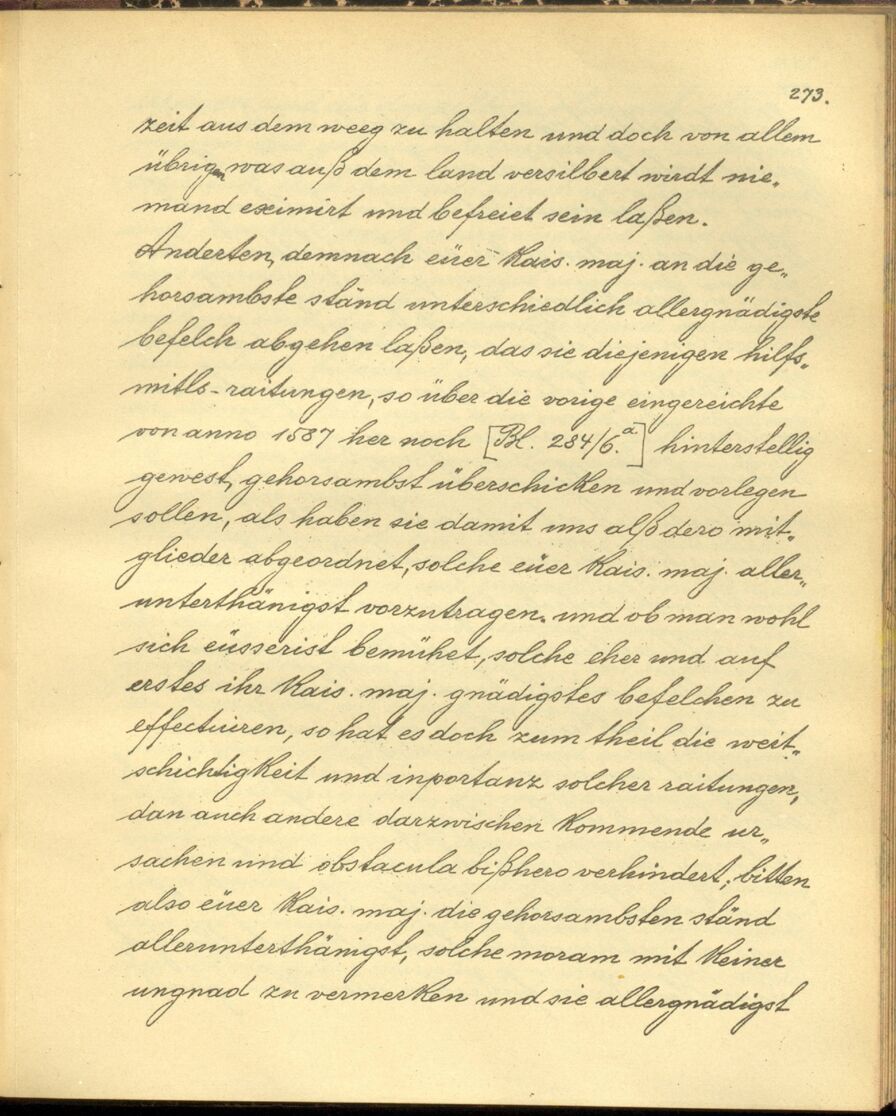 273.
zeit aus dem weeg zu halten und doch von allem
übrigen was auß dem land versilbert wirdt nie„
mand eximirt und befreiet sein laßen.
Anderten, demnach eüer Kais. maj. an die ge„
horsambste ständ unterschiedlich allergnädigste
befelch abgehen laßen, das sie diejenigen hilfs„
mitls-raitungen, so über die vorige eingereichte
von anno 1587 her noch [Bl. 284/6.a] hinterstellig
gewest, gehorsambst überschicken und vorlegen
sollen, als haben sie damit uns alß dero mit„
glieder abgeordnet, solche eüer Kais. maj. aller„
unterthänigst vorzutragen. und ob man wohl
sich eüsserist bemühet, solche eher und auf
erstes ihr Kais. maj. gnädigstes befelchen zu
effectuiren, so hat es doch zum theil die weit„
schichtigkeit und inportanz solcher raitungen,
dan auch andere darzwischen kommende ur„
sachen und obstacula bißhero verhindert; bitten
also eüer Kais. maj. die gehorsambsten ständ
allerunterthänigst, solche moram mit keiner
ungnad zu vermerken und sie allergnädigst